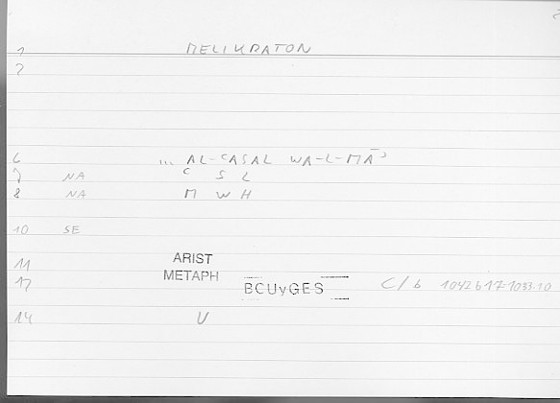 1 MELIKRATON
2
6 ... AL-ʿASAL WA-L-MĀʾ
7 NA ʿ S L
8 NA M W H
10 SE
11 ARIST
METAPH
BCUyGES
C/b 1042b17-1033.10
14 U